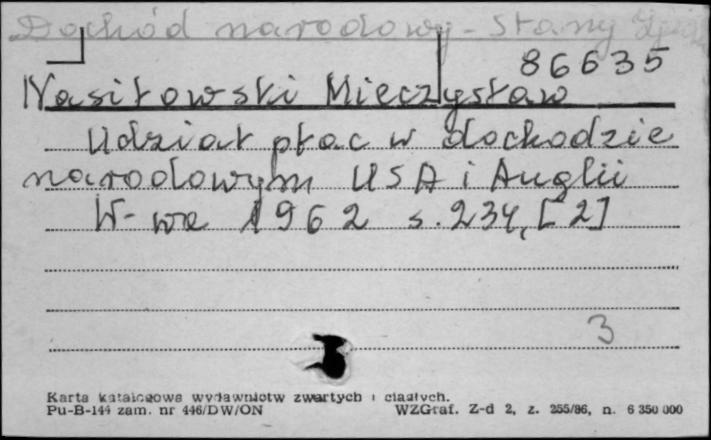 Dochód narodowy - Stany Zjedn
86635
Nasiłowski Mieczysław
Udział płac w dochodzie
narodowym USA i Anglii
W-wa 1962 s. 234, [2]
3
Karta katalogowa wydawnictw zwartych i ciągłych.
Pu-B-144 zam. nr 446/DW/ON WZGraf. Z-d 2, z. 255/86, n. 6 350 000